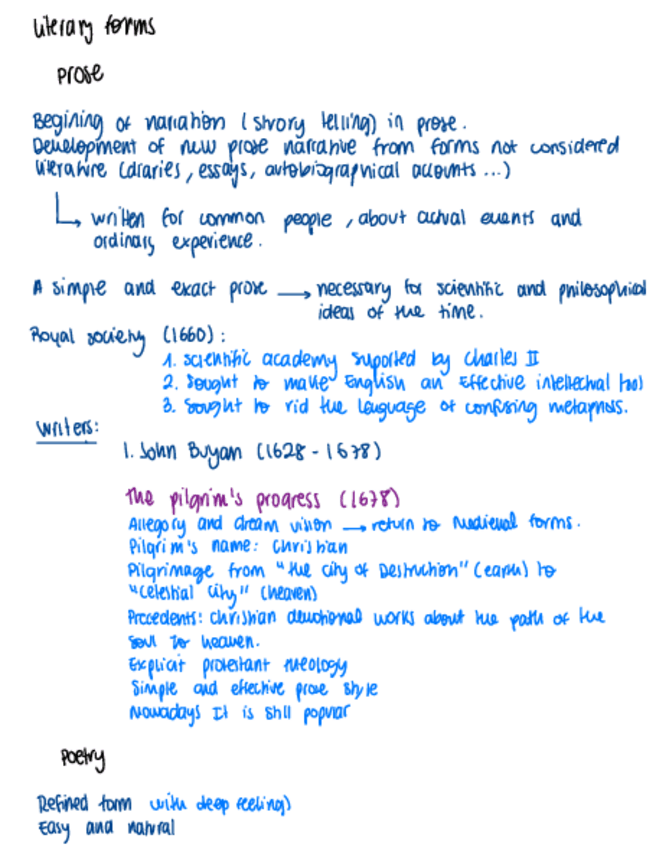 Literary forms
prose
Begining of narration (strory telling) in prose.
Development of new prose narrative from forms not considered
literature (diaries, essays, autobiographical accounts ...)
↳ written for common people, about actual events and
ordinary experience.
A simple and exact prose → necessary for scientific and philosophical
ideas of the time.
Royal society (1660):
1. scientific academy suported by Charles II
2. Sought to make English an Effective intellectual tool
3. Sought to rid the language of confusing metaphors.
Writers:
1. John Buyan (1628 - 1678)
The pilgrim's progress (1678)
Allegory and dream vision → return to Medieval forms.
Pilgrim's name: Christian
Pilgrimage from "the city of Destruction" (earth) to
"Celestial City" (heaven)
Precedents: christian devotional works about the path of the
soul to heaven.
Explicit protestant theology
Simple and effective prose style
Nowadays It is still popular
Poetry
Refined form with deep feeling)
Easy and natural